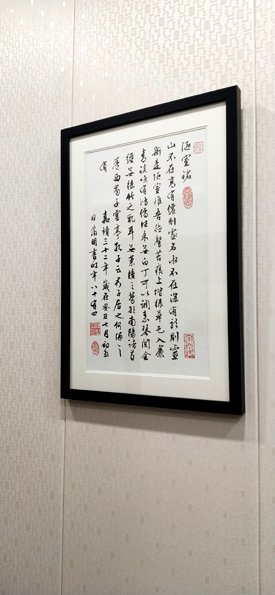 陋室銘
山不在高有僊則名水不在深有龍則靈
斯是陋室惟吾德馨苔痕上堦綠草色入簾
青談笑有鴻儒往來無白丁可以調素琴閱金
經無絲竹之亂耳無案牘之勞形南陽諸葛
廬西蜀子雲亭孔子云君子居之何陋之
有
嘉靖三十二年歲在癸丑七月初五
日徵明書時年八十有四